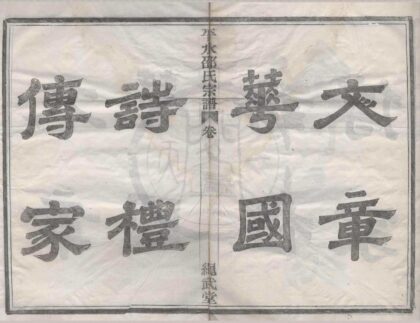 文章
華國
平水邵氏宗譜 卷
繩武堂
詩禮
傳家